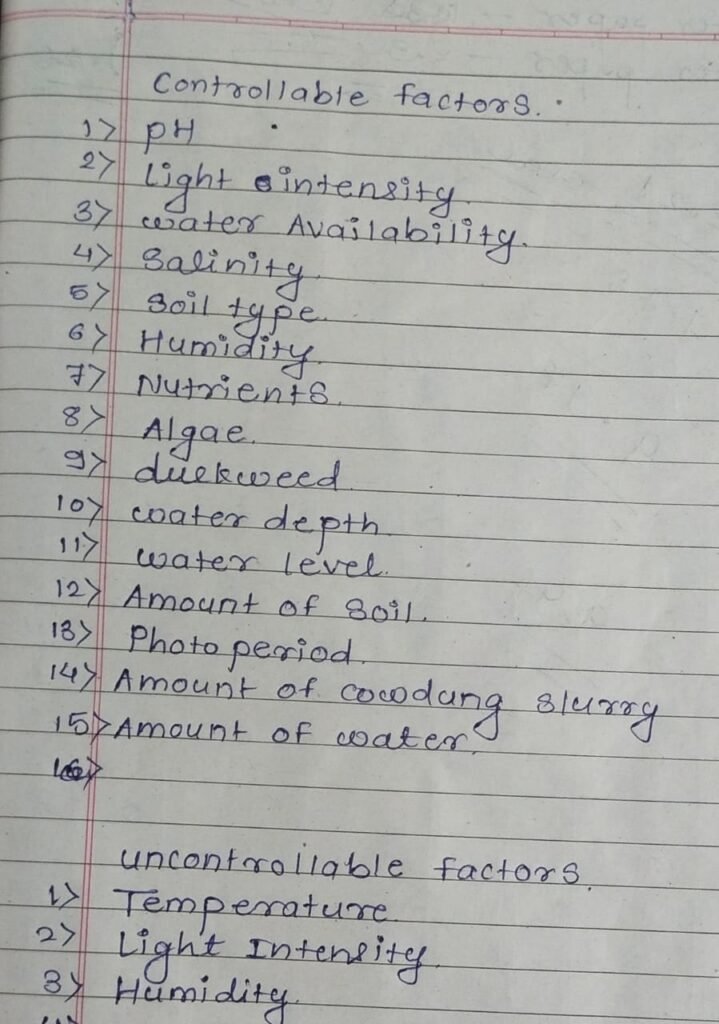 Controllable factors.
1> pH
2> Light intensity
3> water Availability.
4> Salinity
5> Soil type.
6> Humidity
7> Nutrients.
8> Algae.
9> duckweed
10> water depth
11> water level.
12> Amount of Soil.
13> Photo period.
14> Amount of cowdung slurry
15> Amount of water.
16>
uncontrollable factors.
1> Temperature
2> Light Intensity
3> Humidity.